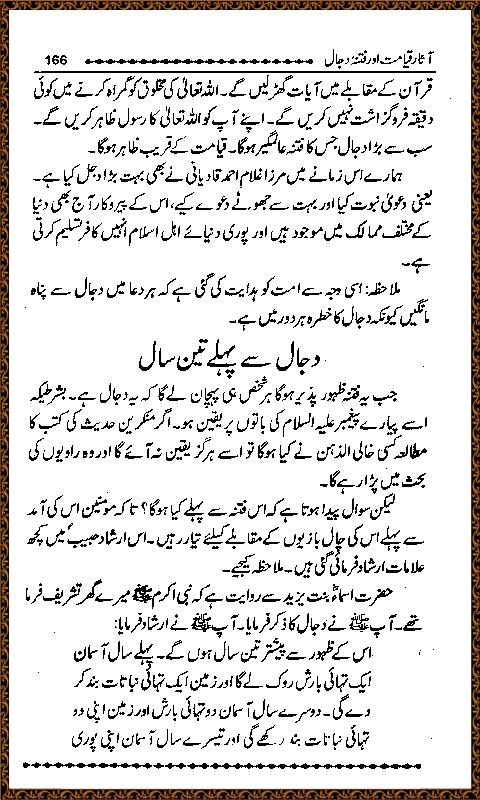 آثار قیامت اور فتنۂ دجال 166
قرآن کے مقابلے میں آیات گھڑ لیں گے۔ اللہ تعالیٰ کی مخلوق کو گمراہ کرنے میں کوئی
دقیقہ فروگزاشت نہیں کریں گے۔ اپنے آپ کو اللہ تعالیٰ کا رسول ظاہر کریں گے۔
سب سے بڑا دجال جس کا فتنہ عالمگیر ہوگا۔ قیامت کے قریب ظاہر ہوگا۔
ہمارے اس زمانے میں مرزا غلام احمد قادیانی نے بھی بہت بڑا دجل کیا ہے۔
یعنی دعویٰ نبوت کیا اور بہت سے جھوٹے دعوے کیے، اس کے پیروکار آج بھی دنیا
کے مختلف ممالک میں موجود ہیں اور پوری دنیائے اہل اسلام انہیں کافر تسلیم کرتی
ہے۔
ملاحظہ: اسی وجہ سے امت کو ہدایت کی گئی ہے کہ ہر دعا میں دجال سے پناہ
مانگیں کیونکہ دجال کا خطرہ ہر دور میں ہے۔
دجال سے پہلے تین سال
جب یہ فتنہ ظہور پذیر ہوگا ہر شخص ہی پہچان لے گا کہ یہ دجال ہے۔ بشرطیکہ
اسے پیارے پیغمبر علیہ السلام کی باتوں پر یقین ہو۔ اگر منکرین حدیث کی کتب کا
مطالعہ کسی خالی الذہن نے کیا ہوگا تو اسے ہرگز یقین نہ آئے گا اور وہ راویوں کی
بحث میں پڑا رہے گا۔
لیکن سوال پیدا ہوتا ہے کہ اس فتنہ سے پہلے کیا ہوگا؟ تاکہ مؤمنین اس کی آمد
سے پہلے اس کی چال بازیوں کے مقابلے کیلئے تیار رہیں۔ اس ارشاد حبیب میں کچھ
علامات ارشاد فرمائی گئی ہیں۔ ملاحظہ کیجیے۔
حضرت اسماءؓ بنت یزید سے روایت ہے کہ نبی اکرم ﷺ میرے گھر تشریف فرما
تھے۔ آپ ﷺ نے دجال کا ذکر فرمایا۔ آپ ﷺ نے ارشاد فرمایا:
اس کے ظہور سے پیشتر تین سال ہوں گے۔ پہلے سال آسمان
ایک تہائی بارش روک لے گا اور زمین ایک تہائی نباتات بند کر
دے گی۔ دوسرے سال آسمان دو تہائی بارش اور زمین اپنی دو
تہائی نباتات بند رکھے گی اور تیسرے سال آسمان اپنی پوری